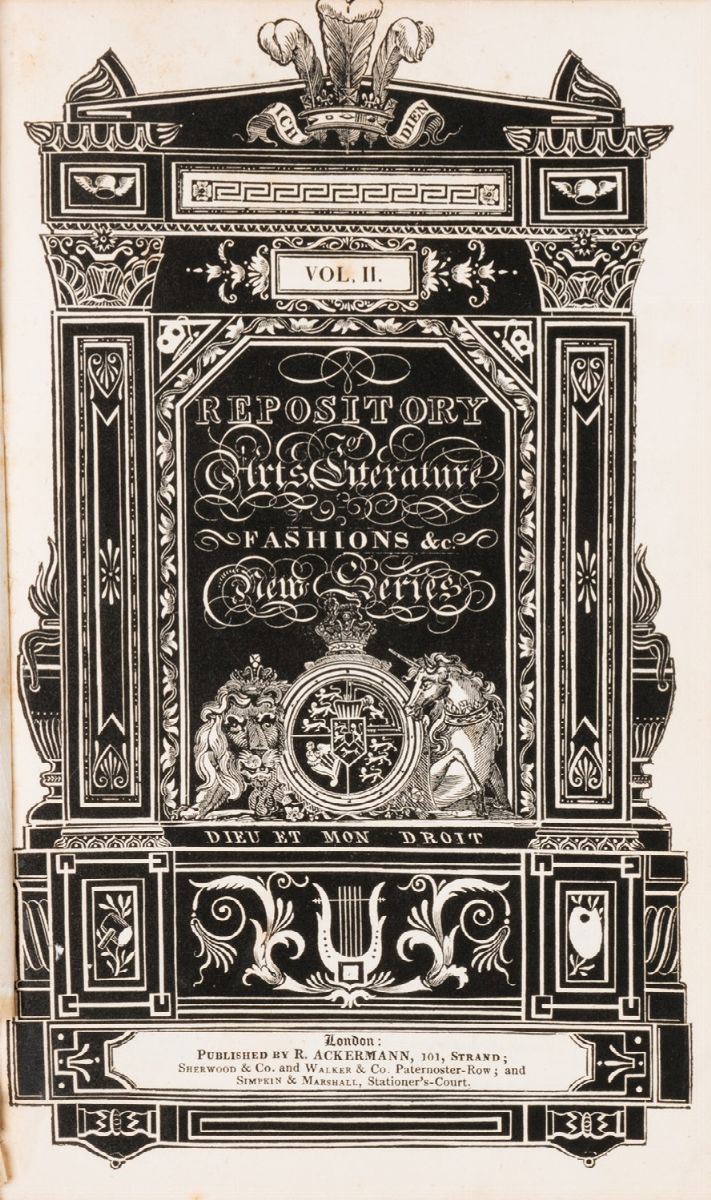 ICH DIEN
VOL. II.
REPOSITORY
of
Arts, Literature
FASHIONS &c.
New Series
DIEU ET MON DROIT
London:
PUBLISHED BY R. ACKERMANN, 101, STRAND;
SHERWOOD & Co. and WALKER & Co. Paternoster-Row; and
SIMPKIN & MARSHALL, Stationer's-Court.